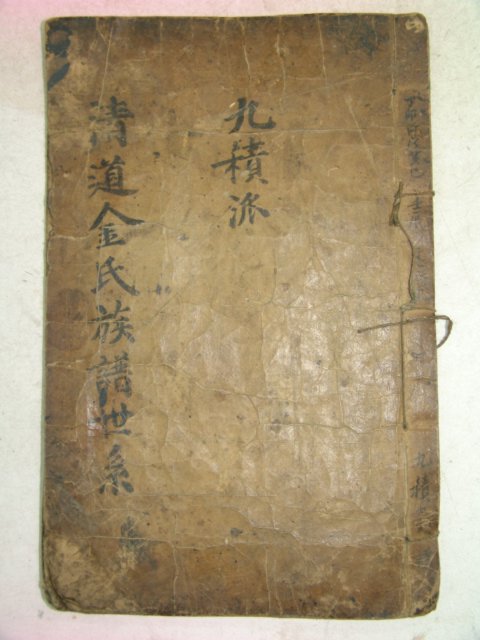 九積派
清道金氏族譜世系
九積